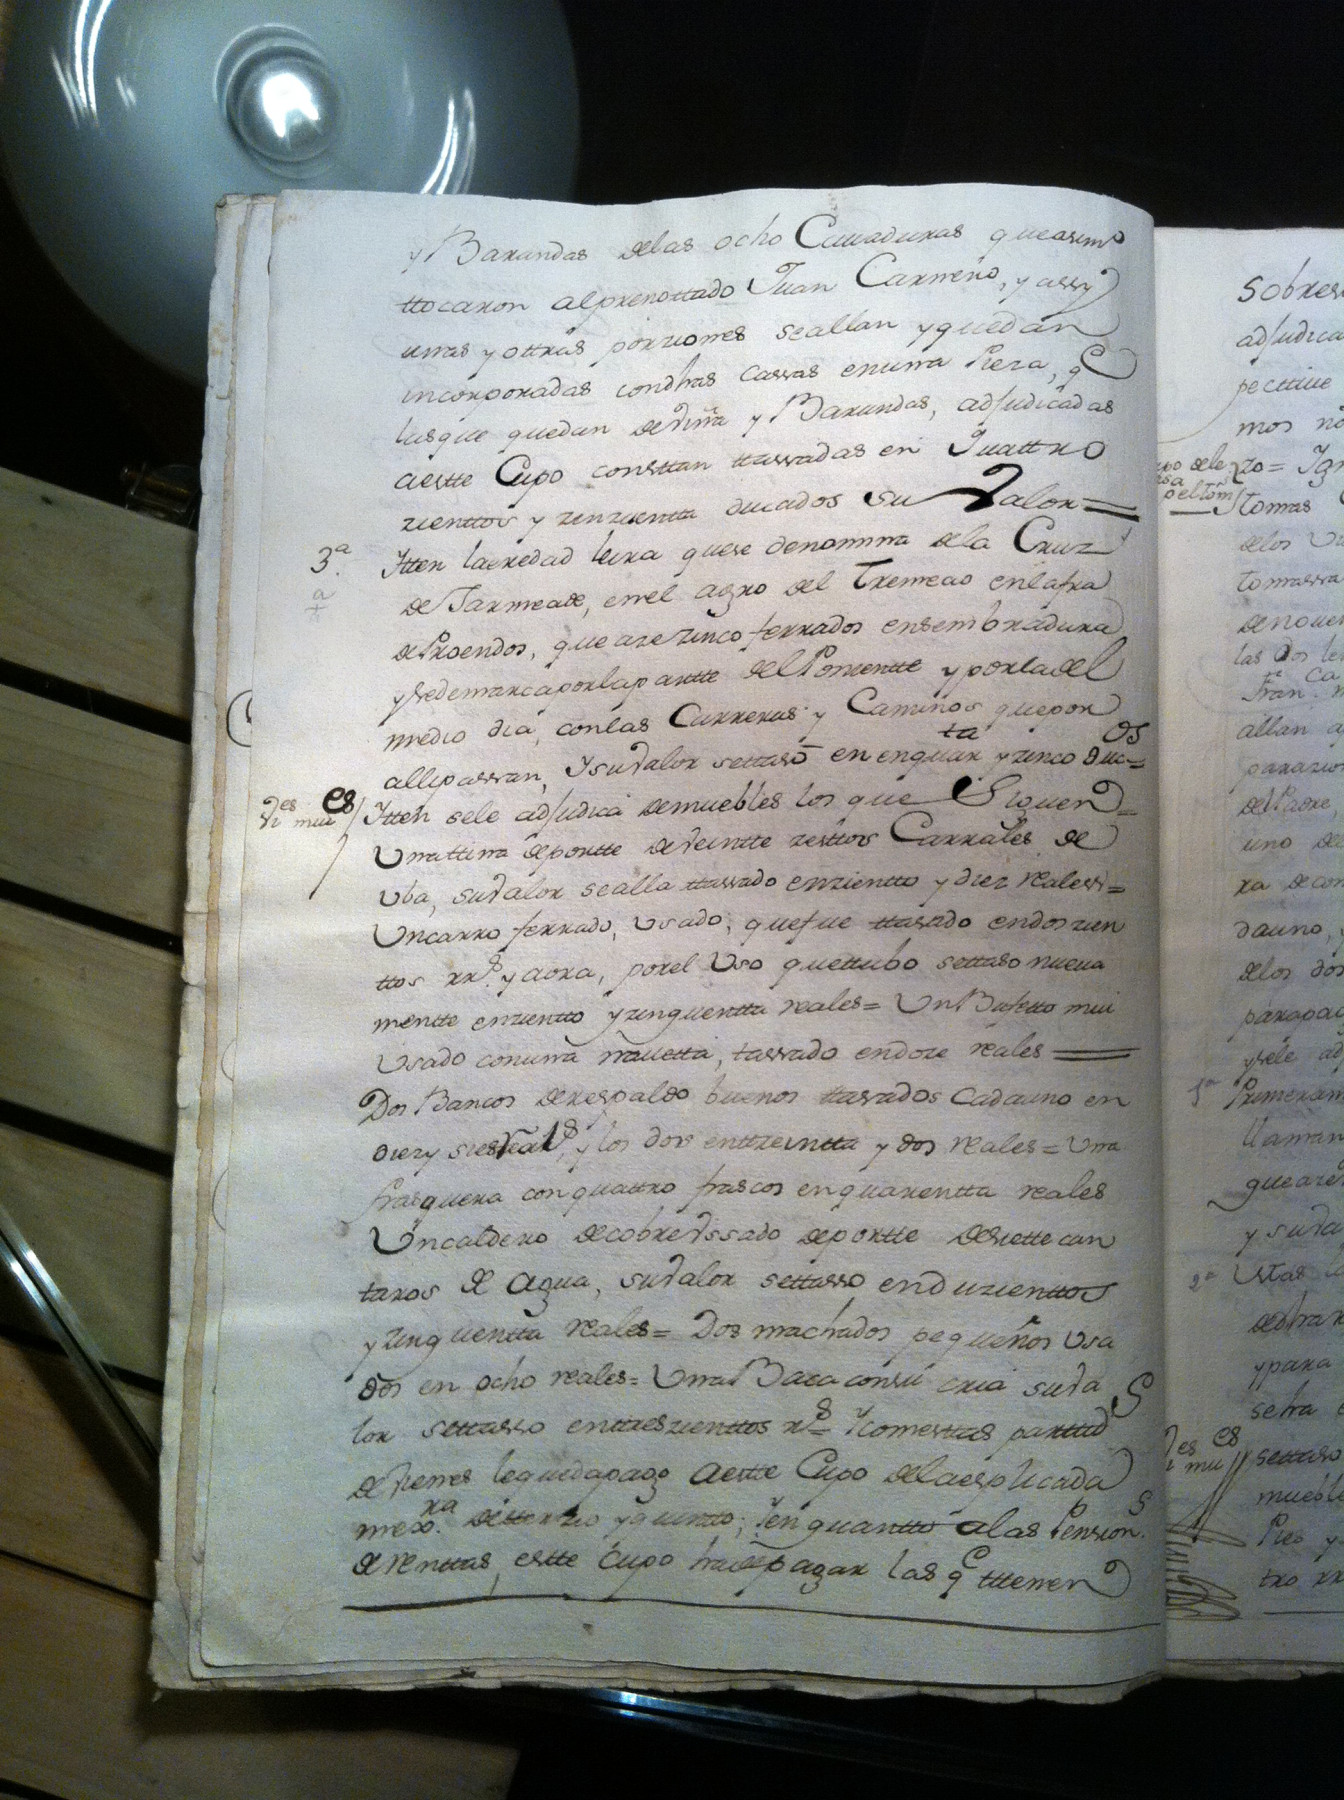 y Barandas delas ocho Cauaduras queasimo
ttocaron alprenottado Juan Carneño, y assy
unas y ottras porziones seallan y quedan
incorporadas condhas cassas enuna Pieza, q
lasque quedan deviña y Barandas, adjudicadas
aestte Cupo consttan ttassadas en Quattro
zienttos y zinzuentta ducados su Valor =
3ª Ytten laeredad leira quese denomina dela Cruz
de Tarmeade, enel agro del Tremeao enlafra
deProendos, queaze zinco ferrados ensembradura
ysedemarcaporlapartte delPonientte y porladel
medio dia, conlas Carreras y Caminos quepor
allipassan, Ysuvalor settasó en enquar ta y zinco duc os =
Vi es mu es / Ytten sele adjudica demuebles los que Siguen =
Unattina deportte deveintte zesttos Carrales de
Uba, suvalor sealla ttassado enzientto y diez reales =
Uncarro ferrado, Usado, quefue ttasado endoszien
ttos rrs. y aora, porel Uso quettubo settaso nueua
mentte enzientto yzinquentta reales = UnBufetto mui
Usado conuna nauetta, tassado endoze reales =
Dos Bancos derespaldo buenos ttasados cadauno en
diezy seis reals, y los dos enttreintta y dos reales = Una
frasquera conquattro frascos enquarentta reales
Uncaldero decobreVssado deportte desiette can
taros de agua, suvalor settasso enduzienttos
yzinquentta reales = Dos machados pequeños Usa
dos en ocho reales = Una Baca consu cria suva
lor settasso enttreszienttos rs = Yconesttas parttid s
devienes lequedapago aestte Cupo delaesplicada
mexo ra. detterzio yquintto; Yenquantto alas Pension s.
derenttas, estte cupo hadepagar las q ttienen
Sobres
adjudica
pecttiue
mos no
tomas
delos
tomassa
denouen
las Dos le
Fran ca
allan
parazio
delPadre,
uno de
ra decon
dauno,
delos dos
parapag
ysele ad
1ª Primeram
llaman
queaze
y suva
2ª
ypara
seha
es mu es settaso
mueble
Pies y
tro rr